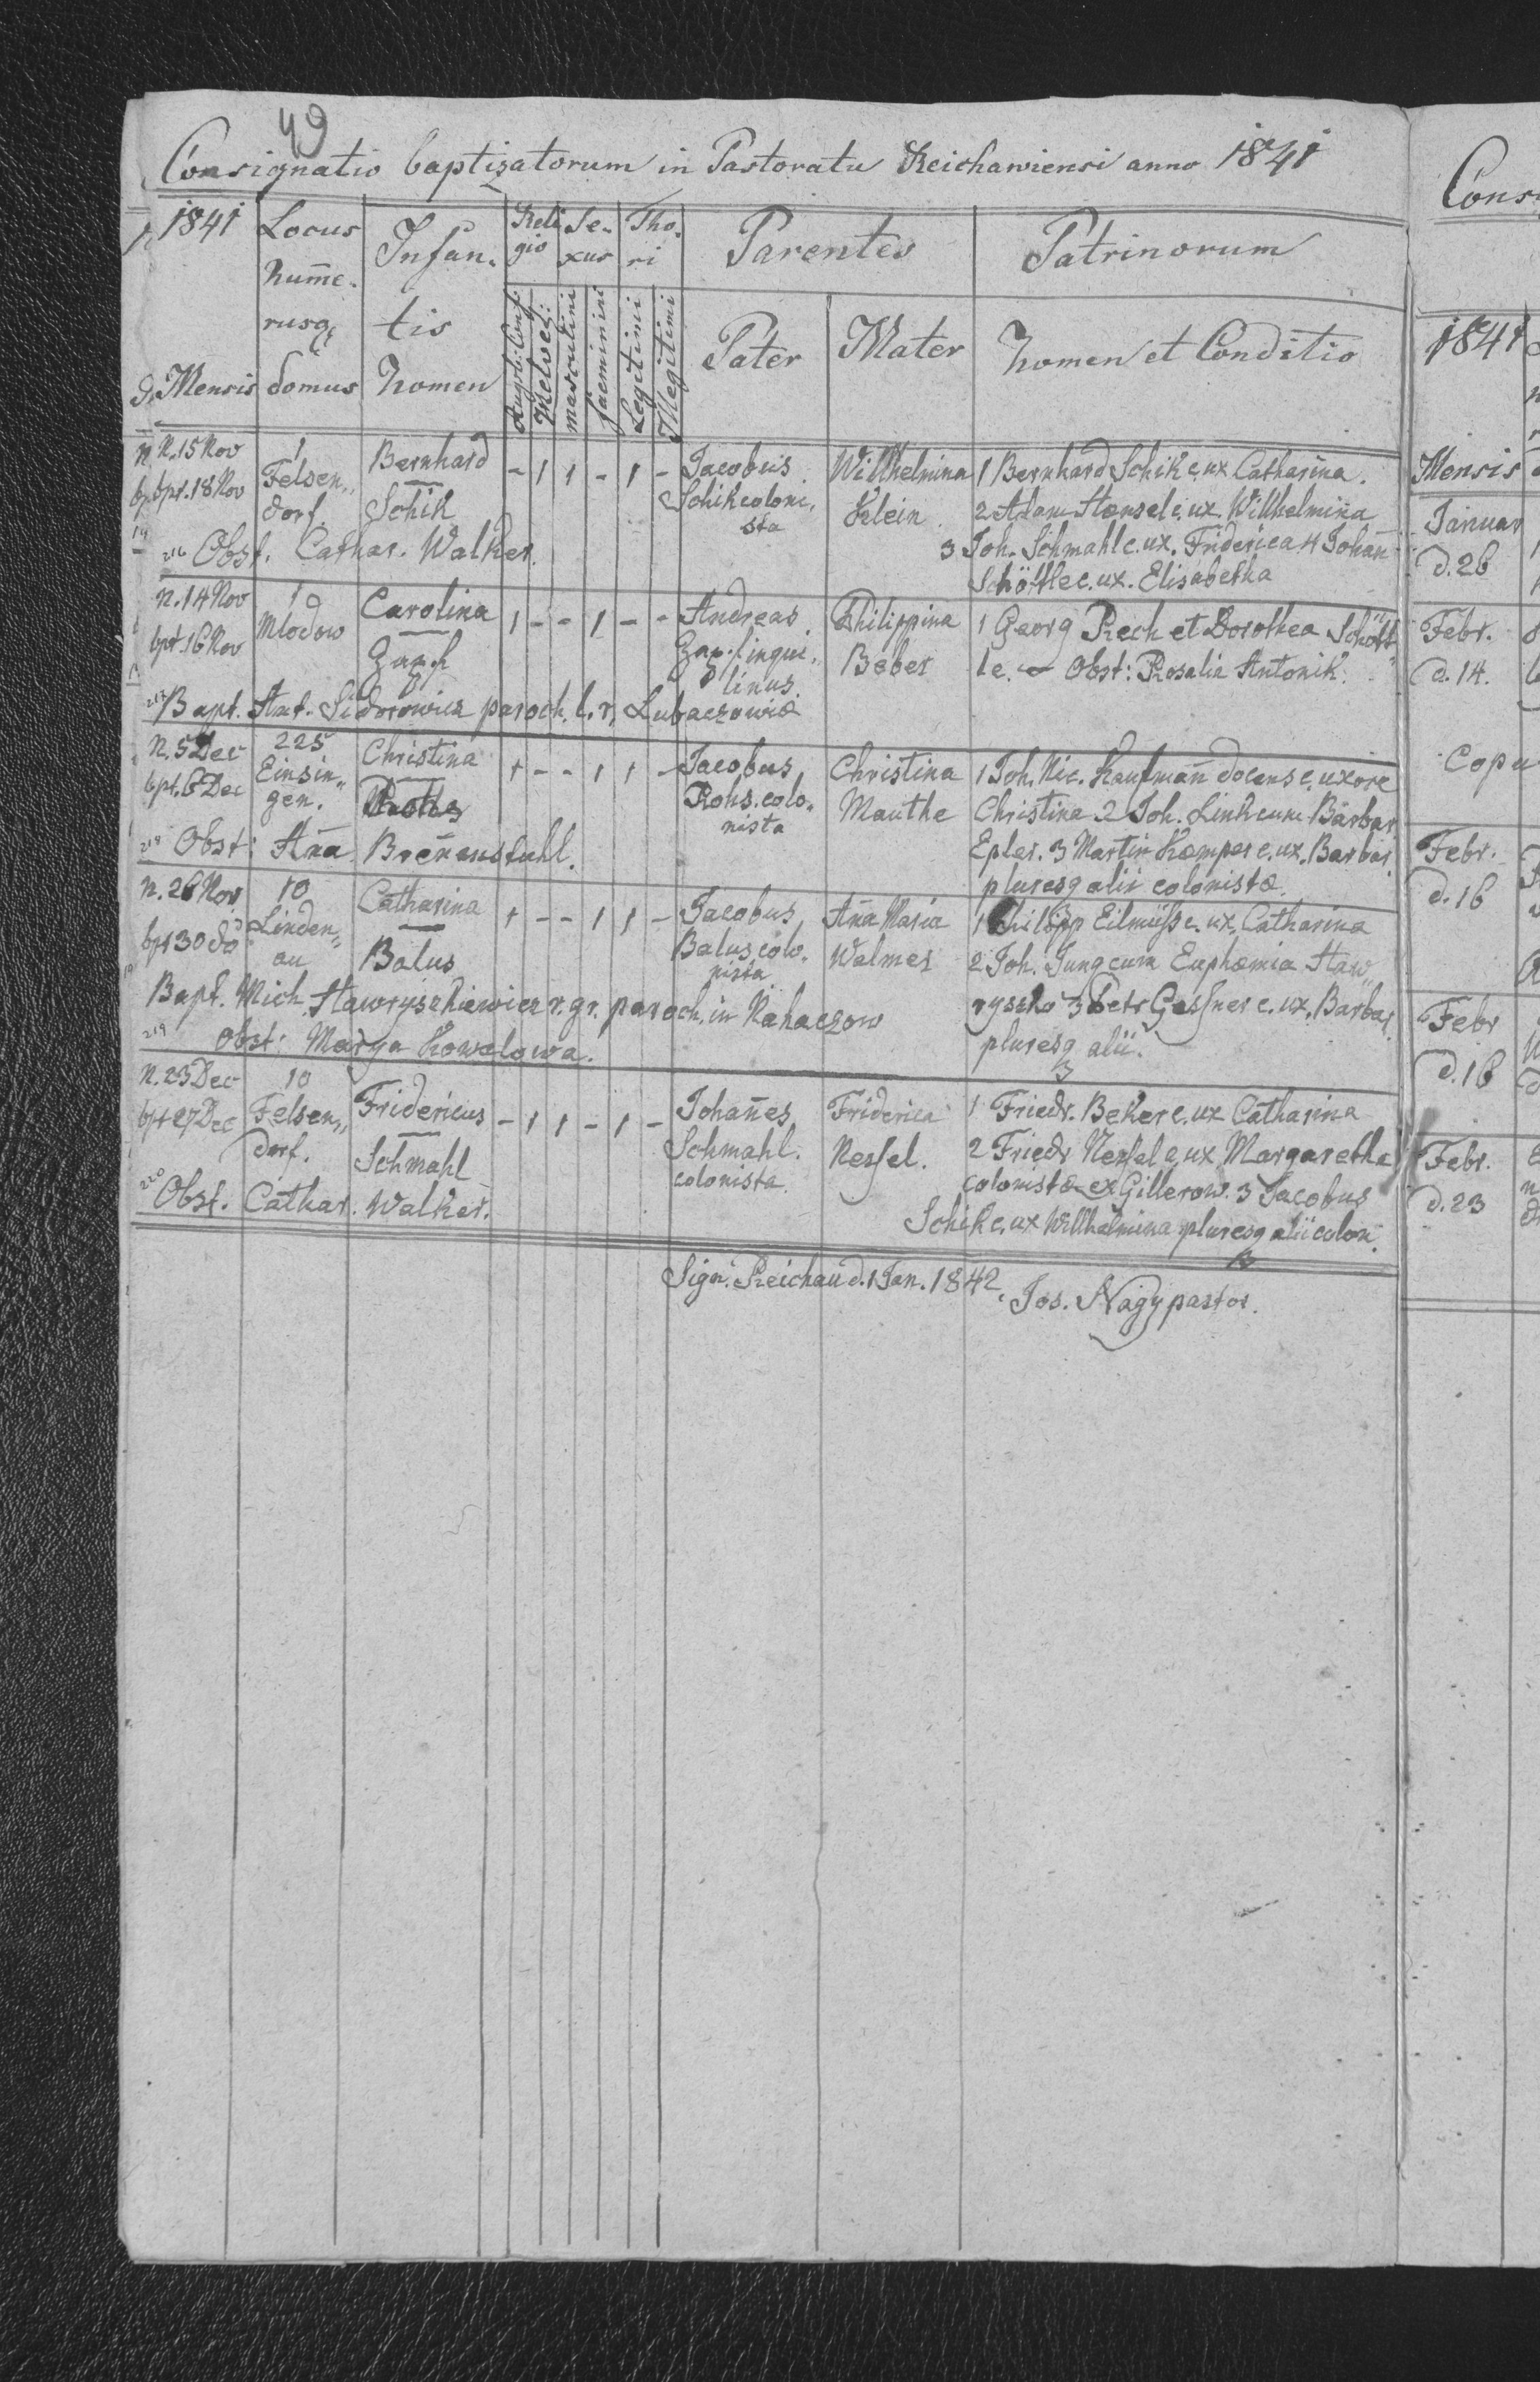 49
Consignatio baptizatorum in Pastoratu Reichawiensi anno 1841
1841 Locus Numerusq domus
d. Mensis
Infantis Nomen
Religio Sexus Thori
August. Conf. Helvet. masculini faeminini Legitimi Illegitimi
Parentes
Pater Mater
Patrinorum
Nomen et Conditio
n. 15 Nov 1 Bernhard - 1 1 - 1 - Jacobus Willhelmina 1 Bernhard Schik c. ux Catharina.
bpt. 18 Nov Felsen„ Schik coloni, Klein 2 Adam Hensel c. ux. Willhelmina
dorf. Schik sta 3 Joh. Schmahl c. ux. Friderica 4 Johan̄
216 Obst. Cathar. Walker. Schöttle c. ux. Elisabetha
n. 14 Nov 10 Carolina 1 - - 1 - - Andreas Philippina 1 Georg Rech et Dorothea Schött„
bpt 16 Nov Mlodow Zapf Zapf inqui„ Beber le. Obst: Rosalia Antonik.
linus.
217 Bapt. Ant. Sidorowicz paroch. l. r. Lubaczowiæ
n. 5 Dec 225 Christina 1 - - 1 1 - Jacobus Christina 1 Joh. Nic. Kaufman̄ docens c. uxore
bpt. 6 Dec Einsin„ Rohs. colo„ Mauthe Christina 2 Joh. Link cum Barbar
gen. nista Epler. 3 Martin Kæmper c. ux. Barbar.
218 Obst: An̄a Bren̄enstuhl. pluresq alii colonistæ.
n. 26 Nov 10 Catharina 1 - - 1 1 - Jacobus An̄a Maria 1 Philipp Eilmüss c. ux. Catharina
bpt 30 do Linden„ Balus Balus colo„ Welmer 2 Joh. Jung cum Euphæmia Haw„
au nista ryszko 3 Petr Gessner c. ux. Barbar.
Bapt. Mich. Hawryszkiewicz r. gr. paroch. in Nahaczow pluresq alii.
219 Obst: Marya Kowalowa.
n. 23 Dec 10 Fridericus - 1 1 - 1 - Johan̄es Friderica 1 Friedr. Beker c. ux Catharina
bpt 27 Dec Felsen„ Schmahl Schmahl. Nessel. 2 Friedr Nessel c. ux Margaretha
dorf. colonista. colonistæ ex Gillerow. 3 Jacobus
220 Obst. Cathar. Walker. Schik c. ux Willhelmina pluresq alii colon.
Sign. Reichau d. 1 Jan. 1842. Jos. Nagy pastor.
Cons
1841
Mensis
Januar
d. 26
Febr.
d. 14.
Copu
Febr.
d. 16
Febr
d. 16
Febr.
d. 23